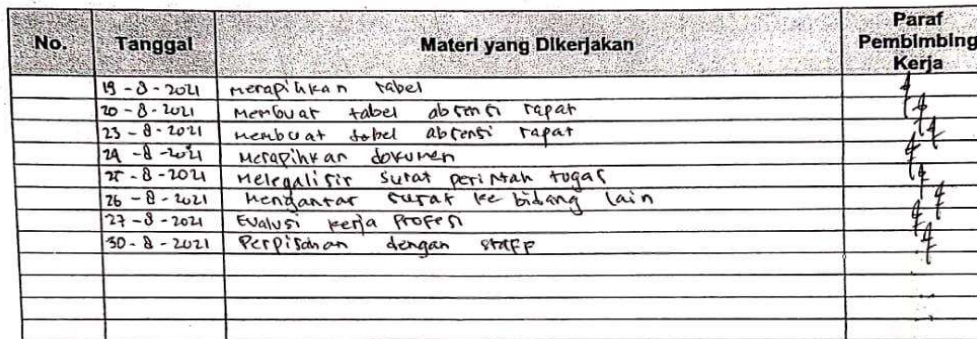 No. Tanggal Materi yang Dikerjakan Paraf Pembimbing Kerja
19 - 8 - 2021 Merapihkan tabel
20 - 8 - 2021 Membuat tabel absensi rapat
23 - 8 - 2021 Membuat tabel absensi rapat
24 - 8 - 2021 Merapihkan dokumen
25 - 8 - 2021 Melegalisir surat perintah tugas
26 - 8 - 2021 Mengantar surat ke bidang lain
27 - 8 - 2021 Evalusi kerja profesi
30 - 8 - 2021 Perpisahan dengan staff